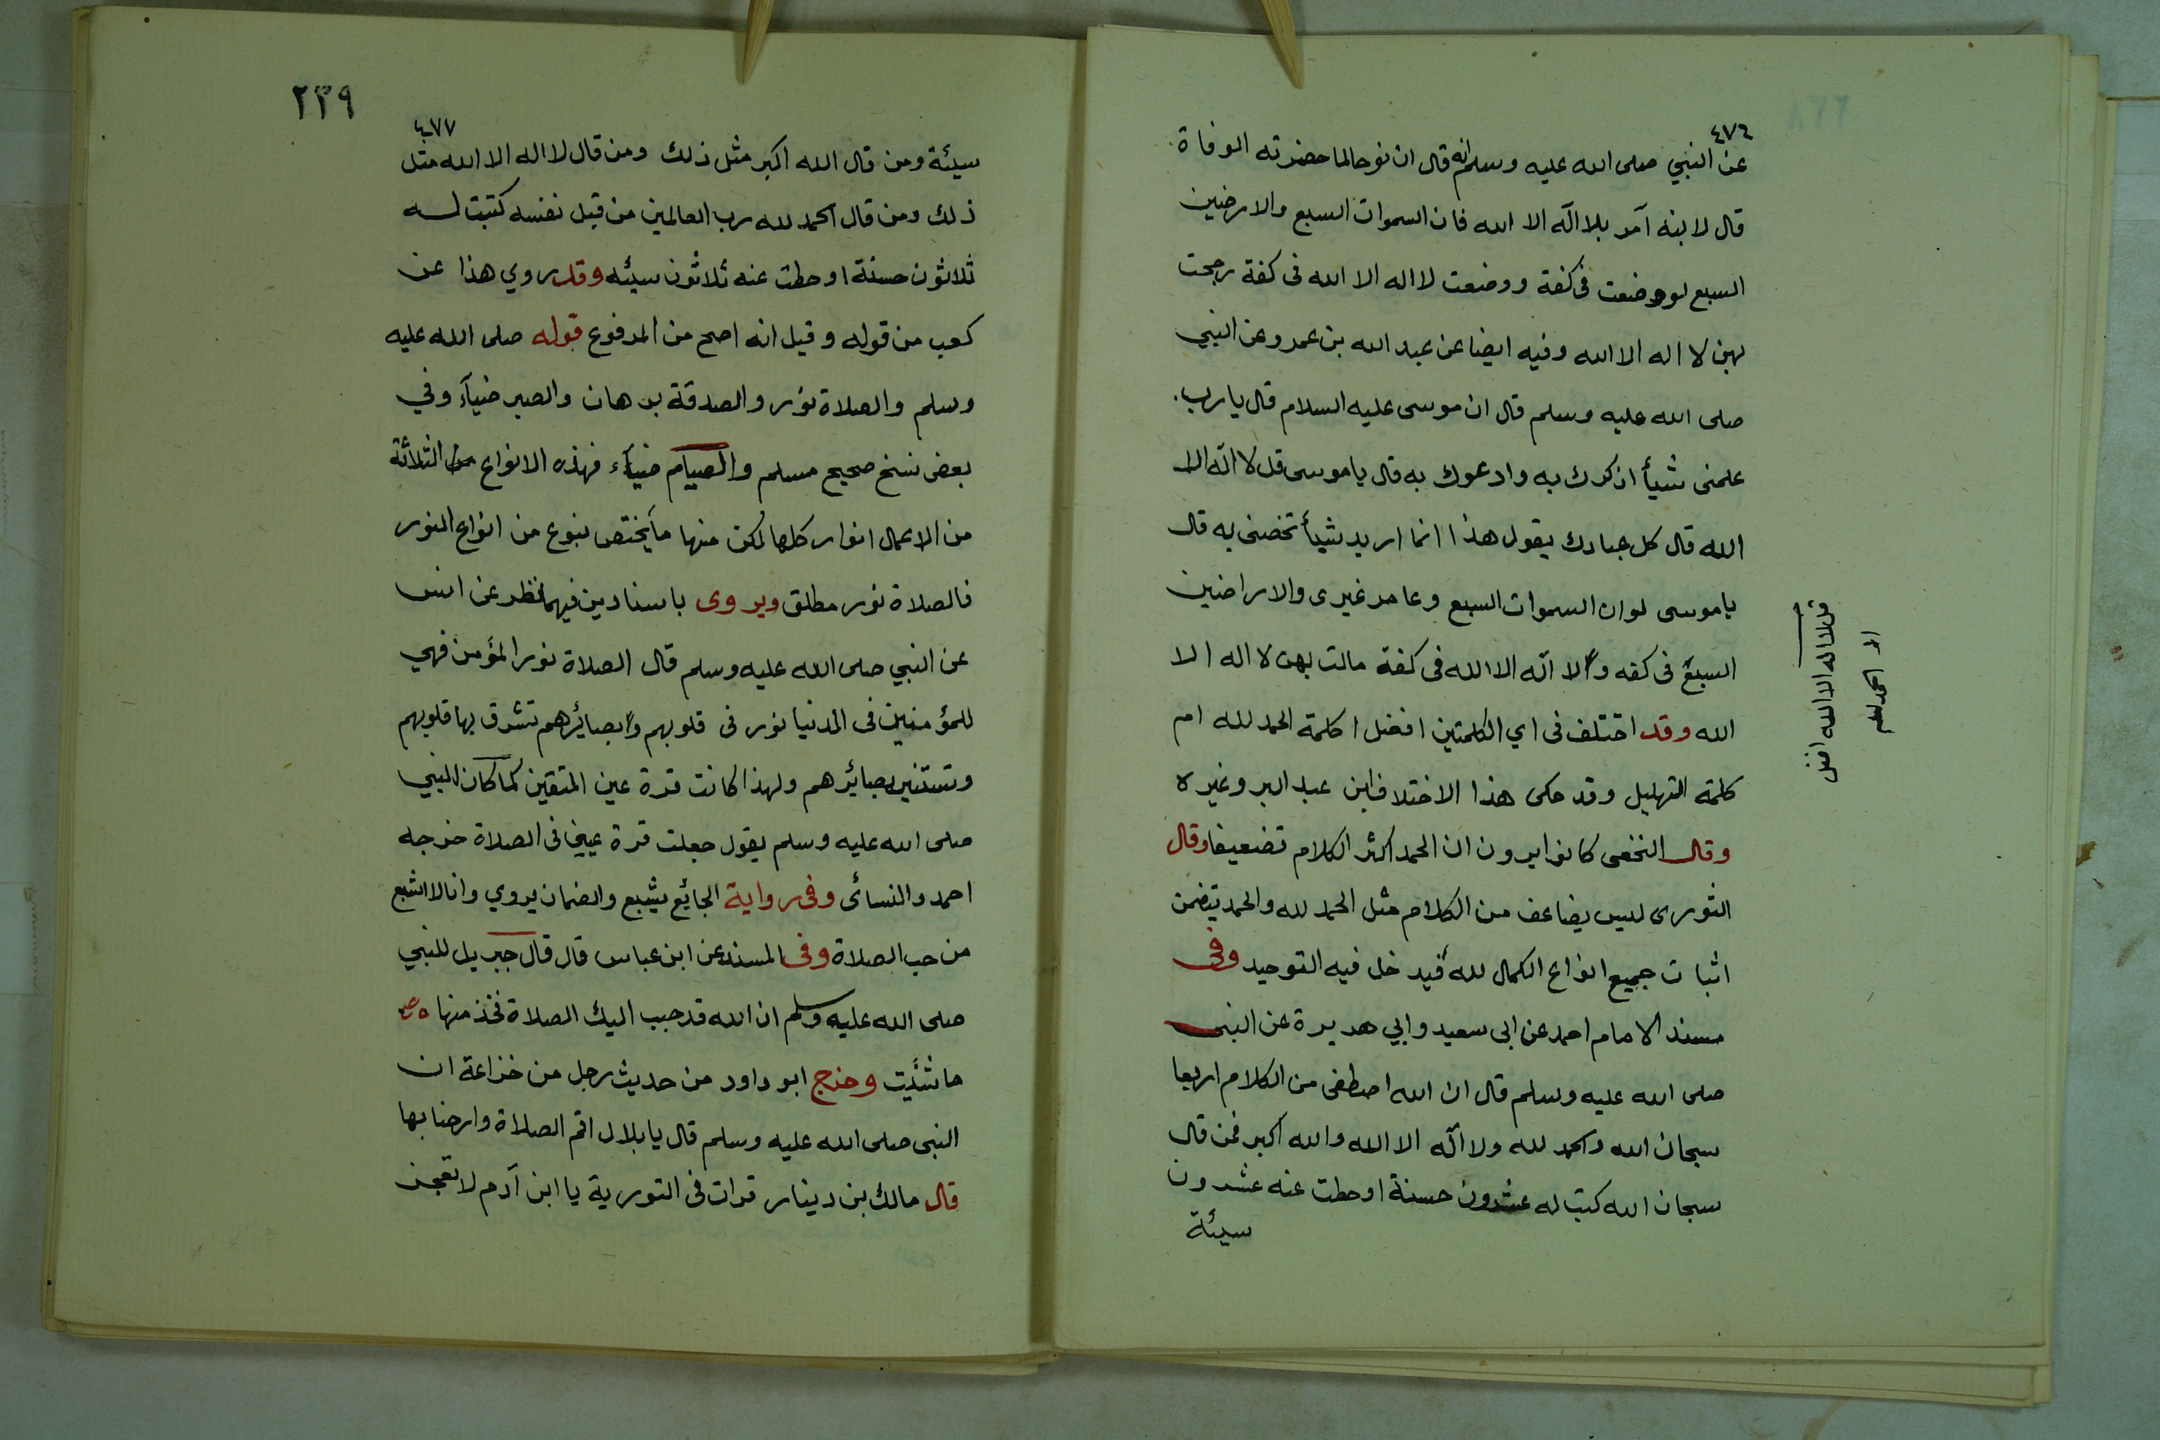 ٤٧٦
عن النبي صلى الله عليه وسلم انه قال ان نوحا لما حضرته الوفاة
قال لابنه آمر بلا الٓه الا الله فان السموات السبع والارضين
السبع لو وضعت فى كفة ووضعت لا اله الا الله فى كفة رجحت
بهن لا اله الا الله وفيه ايضا عن عبد الله بن عمرو عن النبي
صلى الله عليه وسلم قال ان موسى عليه السلام قال يا رب.
علمنى شيأ اذكرك به وادعوك به قال يا موسى قل لا الٓه الا
الله قال كل عبادك يقول هذا انما اريد شيأ تخصنى به قال
يا موسى لو ان السموات السبع وعامر غيرى والاراضين
السبع فى كفه ولا الٓه الا الله فى كفة مالت بهن لا اله الا
الله وقد اختلف فى اي الكلمتين افضل اكلمة الحمد لله ام
كلمة التهليل وقد حكى هذا الاختلاف ابن عبد البر وغيره
وقال النخعى كانوا يرون ان الحمد اكثر الكلام تضعيفا وقال
الثورى ليس يضاعف من الكلام مثل الحمد لله والحمد يتضمن
اثبات جميع انواع الكمال لله فيدخل فيه التوحيد وفى
مسند الامام احمد عن ابى سعيد وابي هريرة عن النبى
صلى الله عليه وسلم قال ان الله اصطفى من الكلام اربعا
سبحان الله والحمد لله ولا الٓه الا الله والله اكبر فمن قال
سبحان الله كتب له عشرون حسنة او حطت عنه عشرون
سيئة
لا اله الا الله افضل
ام الحمد لله
٢٣٩
٤٧٧
سيئة ومن قال الله اكبر مثل ذلك ومن قال لا اله الا الله مثل
ذلك ومن قال الحمد لله رب العالمين من قبل نفسه كتبت له
ثلاثون حسنة او حطت عنه ثلاثون سيئه وقد روي هذا عن
كعب من قوله وقيل انه اصح من المرفوع قوله صلى الله عليه
وسلم والصلاة نور والصدقة برهان والصبر ضيآء وفي
بعض نسخ صحيح مسلم والصيام ضيآء فهذه الانواع الثلاثة
من الاعمال انوار كلها لكن منها ما يختص بنوع من انواع النور
فالصلاة نور مطلق ويروى باسنادين فيهما نظر عن انس
عن النبي صلى الله عليه وسلم قال الصلاة نور المؤمن فهي
للمؤمنين فى الدنيا نور فى قلوبهم وبصائرهم تشرق بها قلوبهم
وتستنير بصائرهم ولهذا كانت قرة عين المتقين كما كان النبي
صلى الله عليه وسلم يقول جعلت قرة عيني فى الصلاة خرجه
احمد والنسائى وفى رواية الجائع يشبع والضمان يروي وانا لا اشبع
من حب الصلاة وفى المسند عن ابن عباس قال قال جبريل للنبي
صلى الله عليه وسلم ان الله قد حبب اليك الصلاة فخذ منها
ما شئت وخرج ابو داود من حديث رجل من خزاعة ان
النبى صلى الله عليه وسلم قال يا بلال اقم الصلاة وارحنا بها
قال مالك بن دينار قرات فى التورية يا ابن آدم لا تعجز